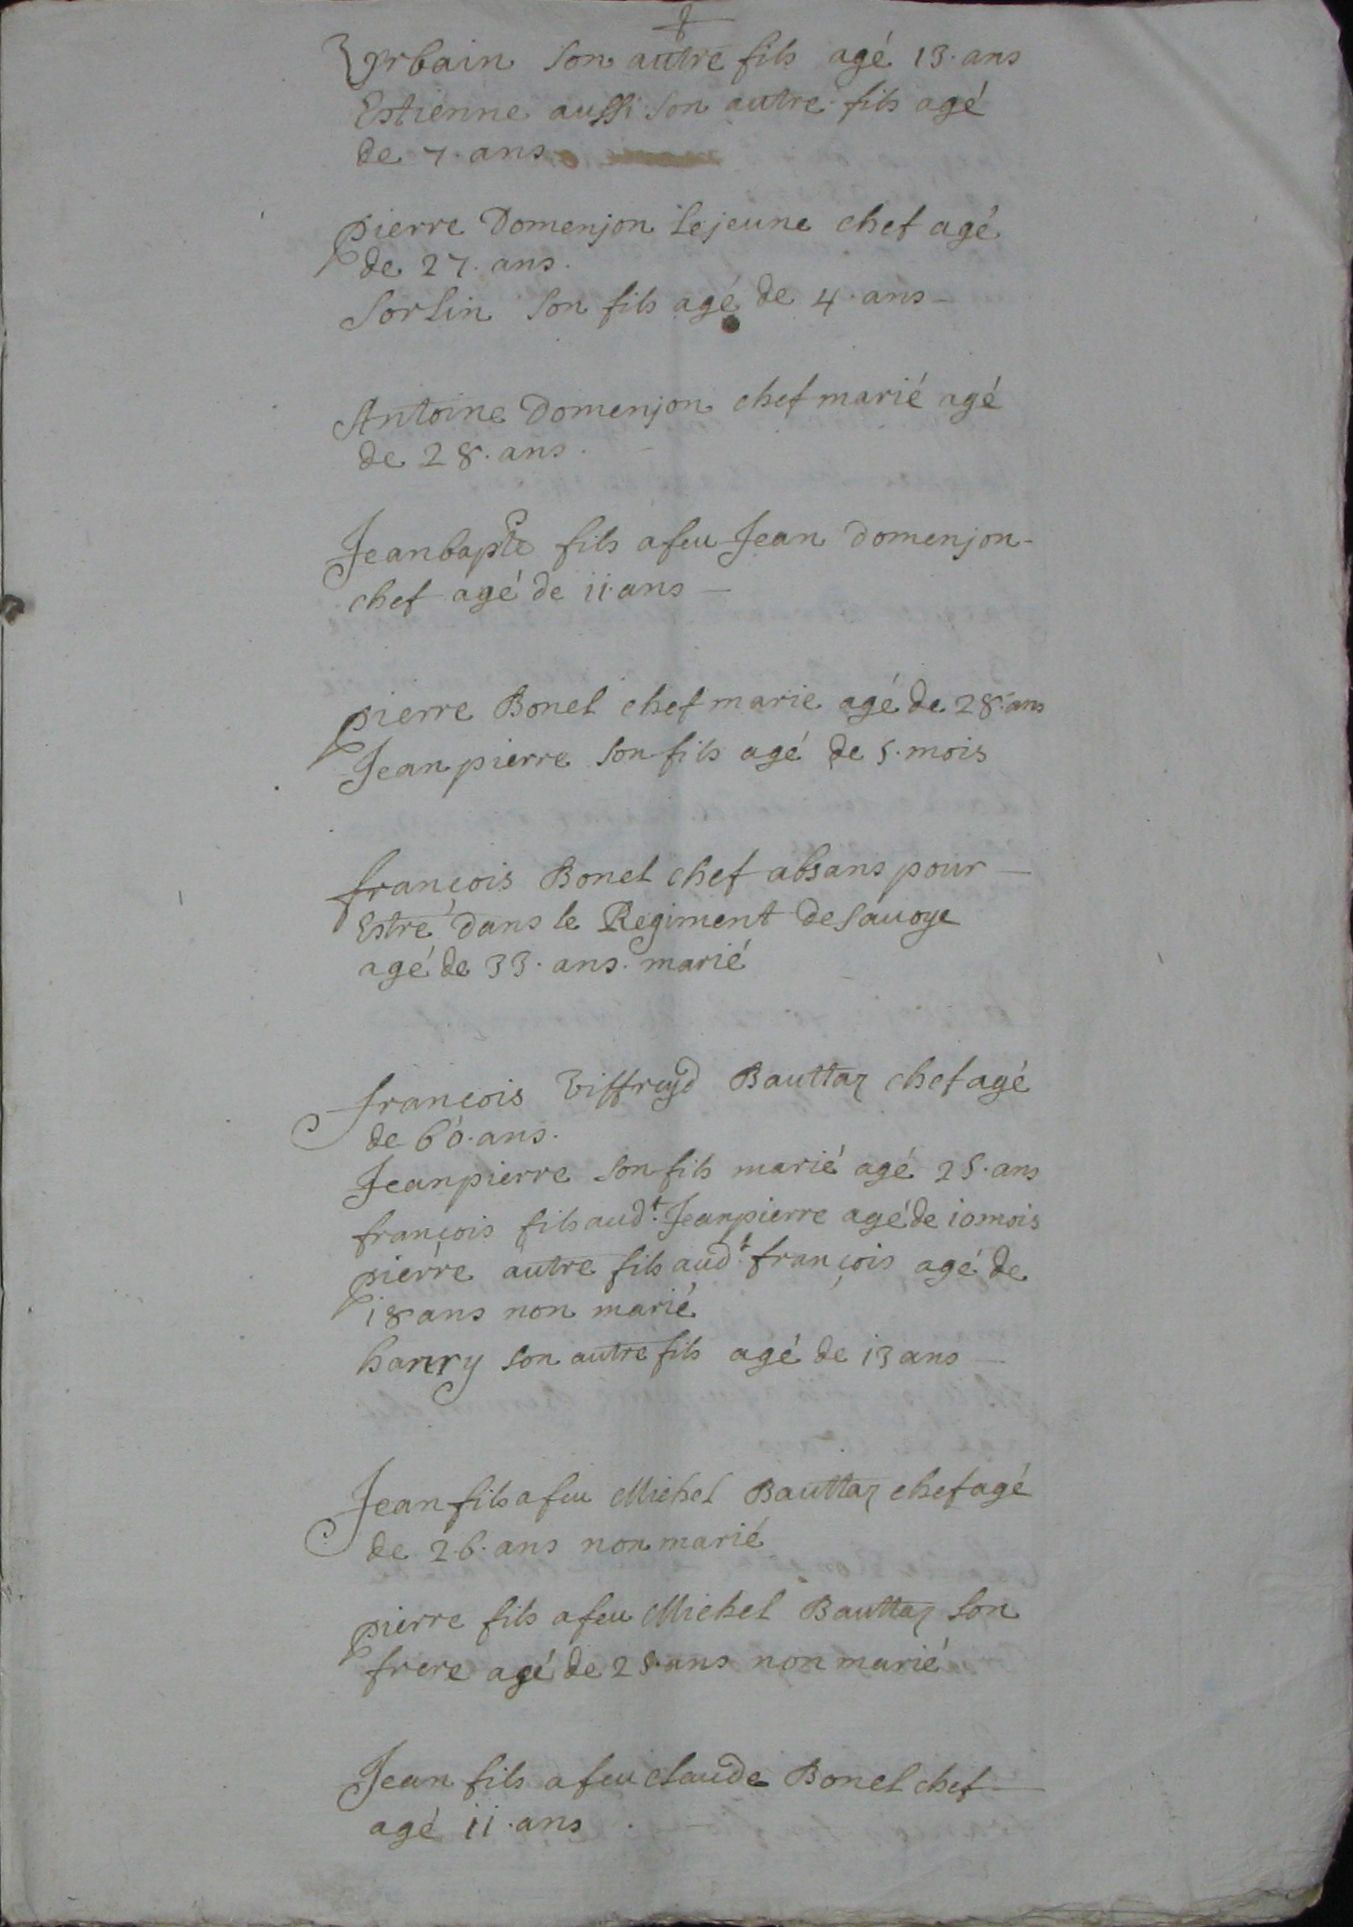 Urbain son autre fils agé 13. ans
Estienne aussi son autre fils agé
de 7. ans
pierre Domenjon Lejeune chef agé
de 27. ans.
Sorlin son fils agé de 4. ans
Antoine Domenjon chef marié agé
de 28. ans.
Jean bapte fils a feu Jean Domenjon
chef agé de 11. ans
pierre Bonel chef marie agé de 28. ans
Jean pierre son fils agé de 5. mois
françois Bonel chef absans pour
Estre dans le Regiment de Savoye
agé de 33. ans. marié
françois Viffreyd Bauttaz chef agé
de 60. ans.
Jeanpierre son fils marié agé 25. ans
françois fils audt. Jeanpierre agé de 10 mois
pierre autre fils audt. françois agé de
18 ans non marié
hanry son autre fils agé de 13 ans
Jean fils a feu Michel Bauttaz chef agé
de 26. ans non marié
pierre fils a feu Michel Bauttaz son
frere agé de 25. ans non marié
Jean fils a feu claude Bonel chef
agé 11. ans.